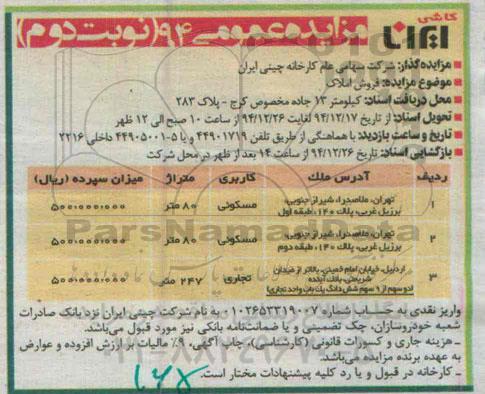 کاشی
ایرانا
مزایده عمومی ۹۴ (نوبت دوم)
مزایده گذار: شرکت سهامی عام کارخانه چینی ایران
موضوع مزایده: فروش املاک
محل دریافت اسناد: کیلومتر ۱۳ جاده مخصوص کرج - پلاک ۲۸۳
تحویل اسناد: از تاریخ ۹۴/۱۲/۱۷ لغایت ۹۴/۱۲/۲۶ از ساعت ۱۰ صبح الی ۱۲ ظهر
تاریخ و ساعت بازدید: با هماهنگی از طریق تلفن ۴۴۹۰۱۷۱۹ و یا ۵-۴۴۹۰۵۰۰۱ داخلی ۲۲۱۶
بازگشایی اسناد: از تاریخ ۹۴/۱۲/۲۶ از ساعت ۱۴ بعد از ظهر در محل شرکت
ردیف آدرس ملک کاربری متراژ میزان سپرده (ریال)
۱ تهران، ملاصدرا، شیراز جنوبی، برزیل غربی، پلاک ۱۴۰، طبقه اول مسکونی ۸۰ متر ۵۰۰،۰۰۰،۰۰۰
۲ تهران، ملاصدرا، شیراز جنوبی، برزیل غربی، پلاک ۱۴۰، طبقه دوم مسکونی ۸۰ متر ۵۰۰،۰۰۰،۰۰۰
۳ اردبیل، خیابان امام خمینی، بالاتر از میدان شریعتی، بانک آینده (دو سهم از ۹ سهم شش دانگ یک باب واحد تجاری) تجاری ۲۴۷ متر ۵۰۰،۰۰۰،۰۰۰
واریز نقدی به حساب شماره ۰۱۰۲۶۵۳۳۱۹۰۰۷ به نام شرکت چینی ایران نزد بانک صادرات
شعبه خودروسازان، چک تضمینی و یا ضمانت‌نامه بانکی نیز مورد قبول می‌باشد.
ـ هزینه جاری و کسورات قانونی (کارشناسی)، چاپ آگهی، ۹٪ مالیات بر ارزش افزوده و عوارض
به عهده برنده مزایده می‌باشد.
ـ کارخانه در قبول و یا رد کلیه پیشنهادات مختار است.
ParsNamadData